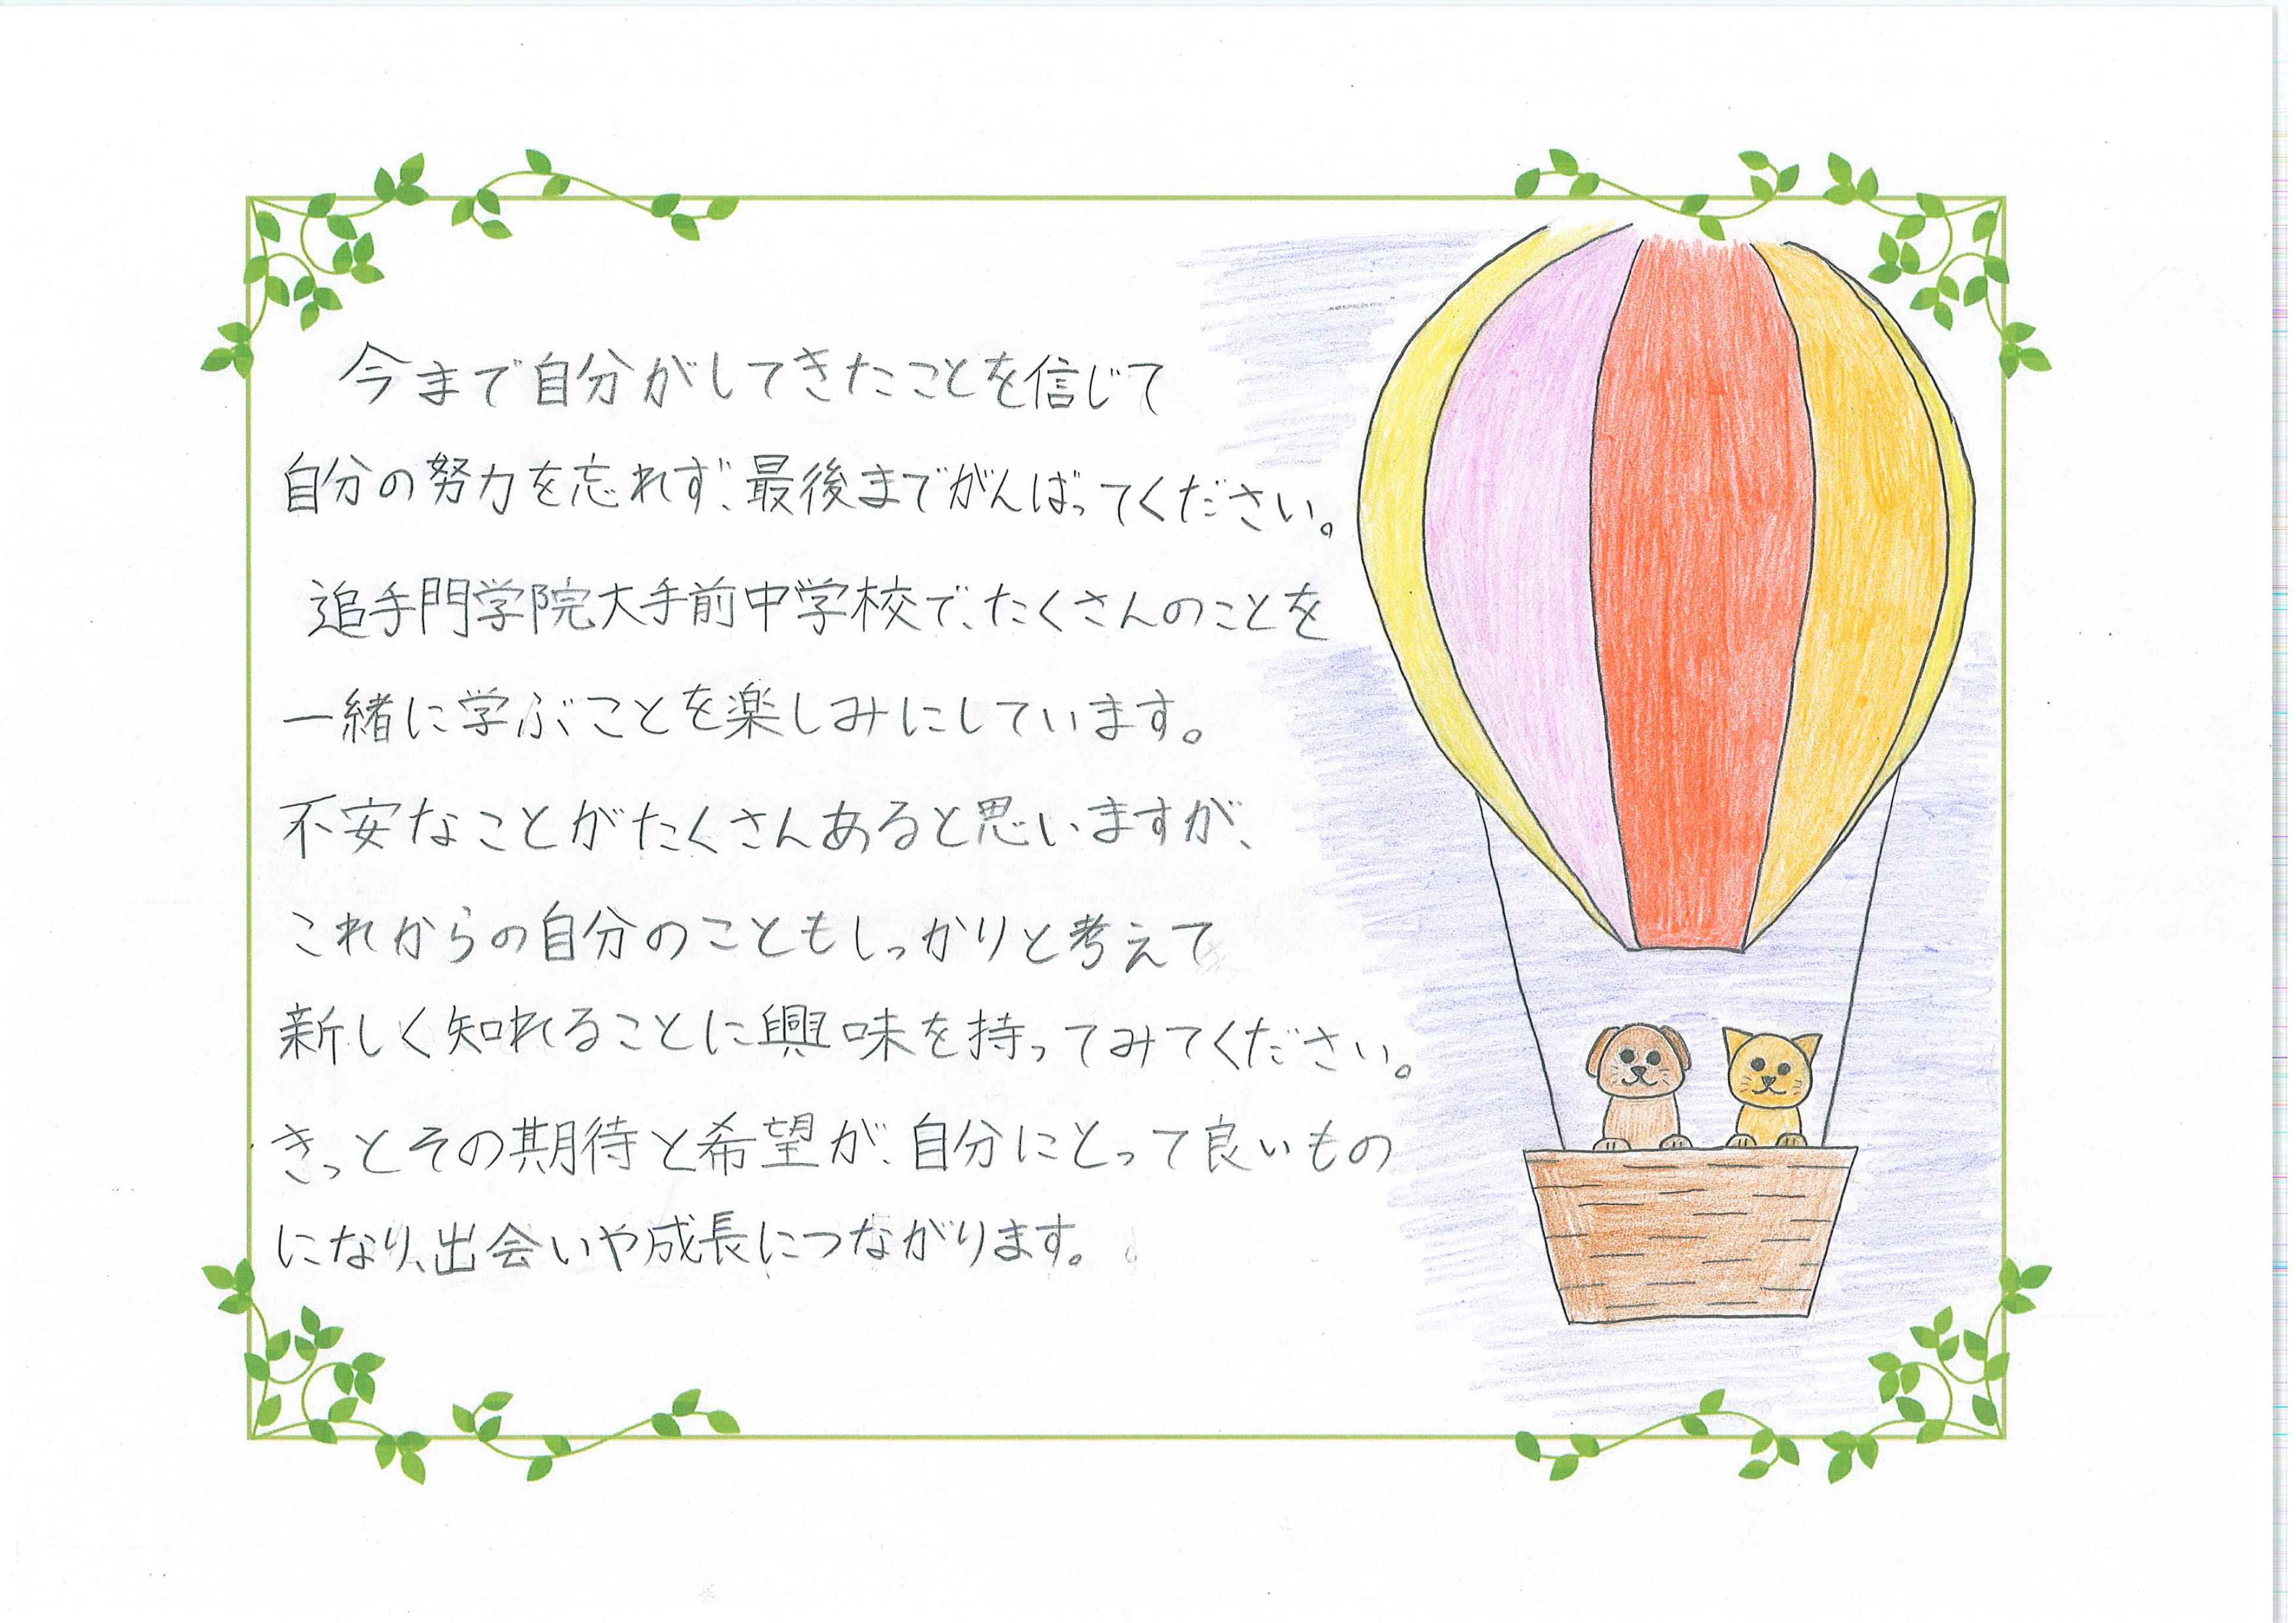 今まで自分がしてきたことを信じて
自分の努力を忘れず、最後までがんばってください。
追手門学院大手前中学校で、たくさんのことを
一緒に学ぶことを楽しみにしています。
不安なことがたくさんあると思いますが、
これからの自分のこともしっかりと考えて
新しく知れることに興味を持ってみてください。
きっとその期待と希望が、自分にとって良いもの
になり、出会いや成長につながります。